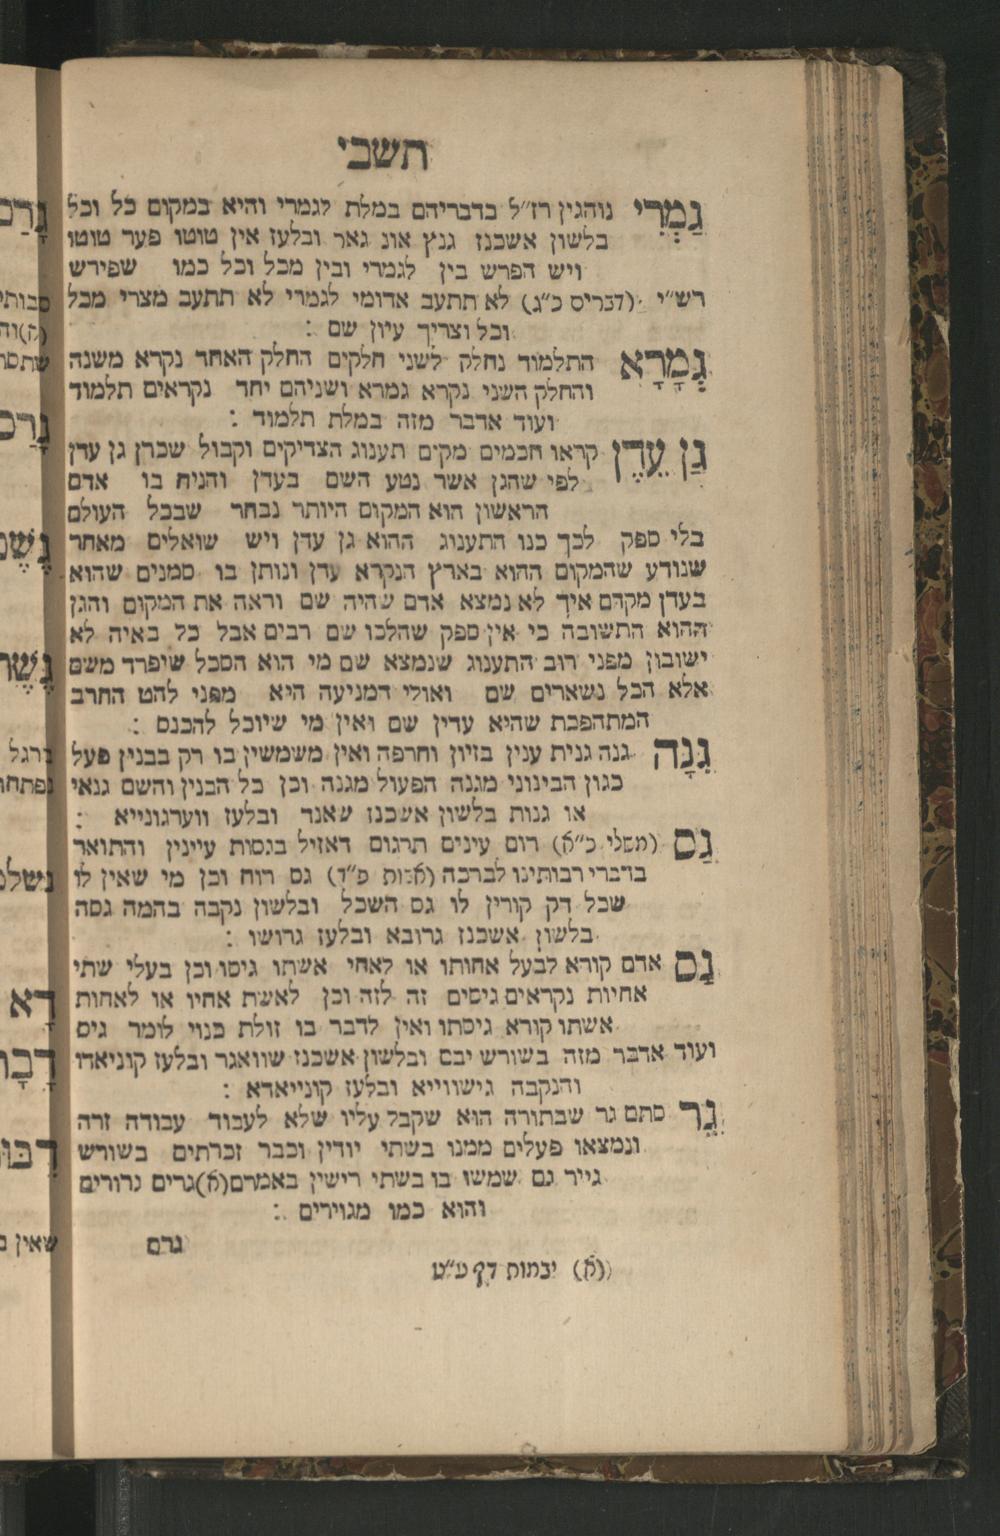 תשבי
גַמְרֵי נוהגין רז״ל בדבריהם במלת לגמרי והיא במקום כל וכל
בלשון אשכנז גנץ אונ גאר ובלעז אין טוטו פער טוטו
ויש הפרש בין לגמרי ובין מכל וכל כמו שפירש
רש״י (דברים כ״ג) לא תתעב אדומי לגמרי לא תתעב מצרי מכל
וכל וצריך עיון שם :
גְמָרָא התלמוד נחלק לשני חלקים החלק האחד נקרא משנה
והחלק השני נקרא גמרא ושניהם יחד נקראים תלמוד
ועוד אדבר מזה במלת תלמוד :
גַן עֵדֶן קראו חכמים מקים תענוג הצדיקים וקבול שכרן גן עדן
לפי שהגן אשר נטע השם בעדן והניח בו אדם
הראשון הוא המקום היותר נבחר שבכל העולם
בלי ספק לכך כנו התענוג ההוא גן עדן ויש שואלים מאחר
שנודע שהמקום ההוא בארץ הנקרא עדן ונותן בו סמנים שהוא
בעדן מקדם איך לא נמצא אדם שהיה שם וראה את המקום והגן
ההוא התשובה כי אין ספק שהלכו שם רבים אבל כל באיה לא
ישובון מפני רוב התענוג שנמצא שם מי הוא הסכל שיפרד משם
אלא הכל נשארים שם ואולי המניעה היא מפני להט החרב
המתהפכת שהיא עדין שם ואין מי שיוכל להכנס :
גִנָה גנה גנית ענין בזיון וחרפה ואין משמשין בו רק בבנין פעל
כגון הבינוני מגנה הפעול מגנה וכן כל הבנין והשם גנאי
או גנות בלשון אשכנז שאנד ובלעז ווערגונייא :
גַס (משלי כ״א) רום עינים תרגום דאזיל בגסות עיינין והתואר
בדברי רבותינו לברכה (אבות פ״ד) גס רוח וכן מי שאין לו
שכל דק קורין לו גס השכל ובלשון נקבה בהמה גסה
בלשון אשכנז גרובא ובלעז גרושו :
גַס אדם קורא לבעל אחותו או לאחי אשתו גיסו וכן בעלי שתי
אחיות נקראים גיסים זה לזה וכן לאשת אחיו או לאחות
אשתו קורא גיסתו ואין לדבר בו זולת כנוי לומר גיס
ועוד אדבר מזה בשורש יבם ובלשון אשכנז שוואגר ובלעז קוניאדו
והנקבה גישווייא ובלעז קונייארא :
גֵר סתם גר שבתורה הוא שקבל עליו שלא לעבוד עבודה זרה
ונמצאו פעלים ממנו בשתי יודין וכבר זכרתים בשורש
גייר גם שמשו בו בשתי רישין באמרם (א) גרים גרורים
והוא כמו מגויירים :
גרם
(א) יבמות דף ע״ט